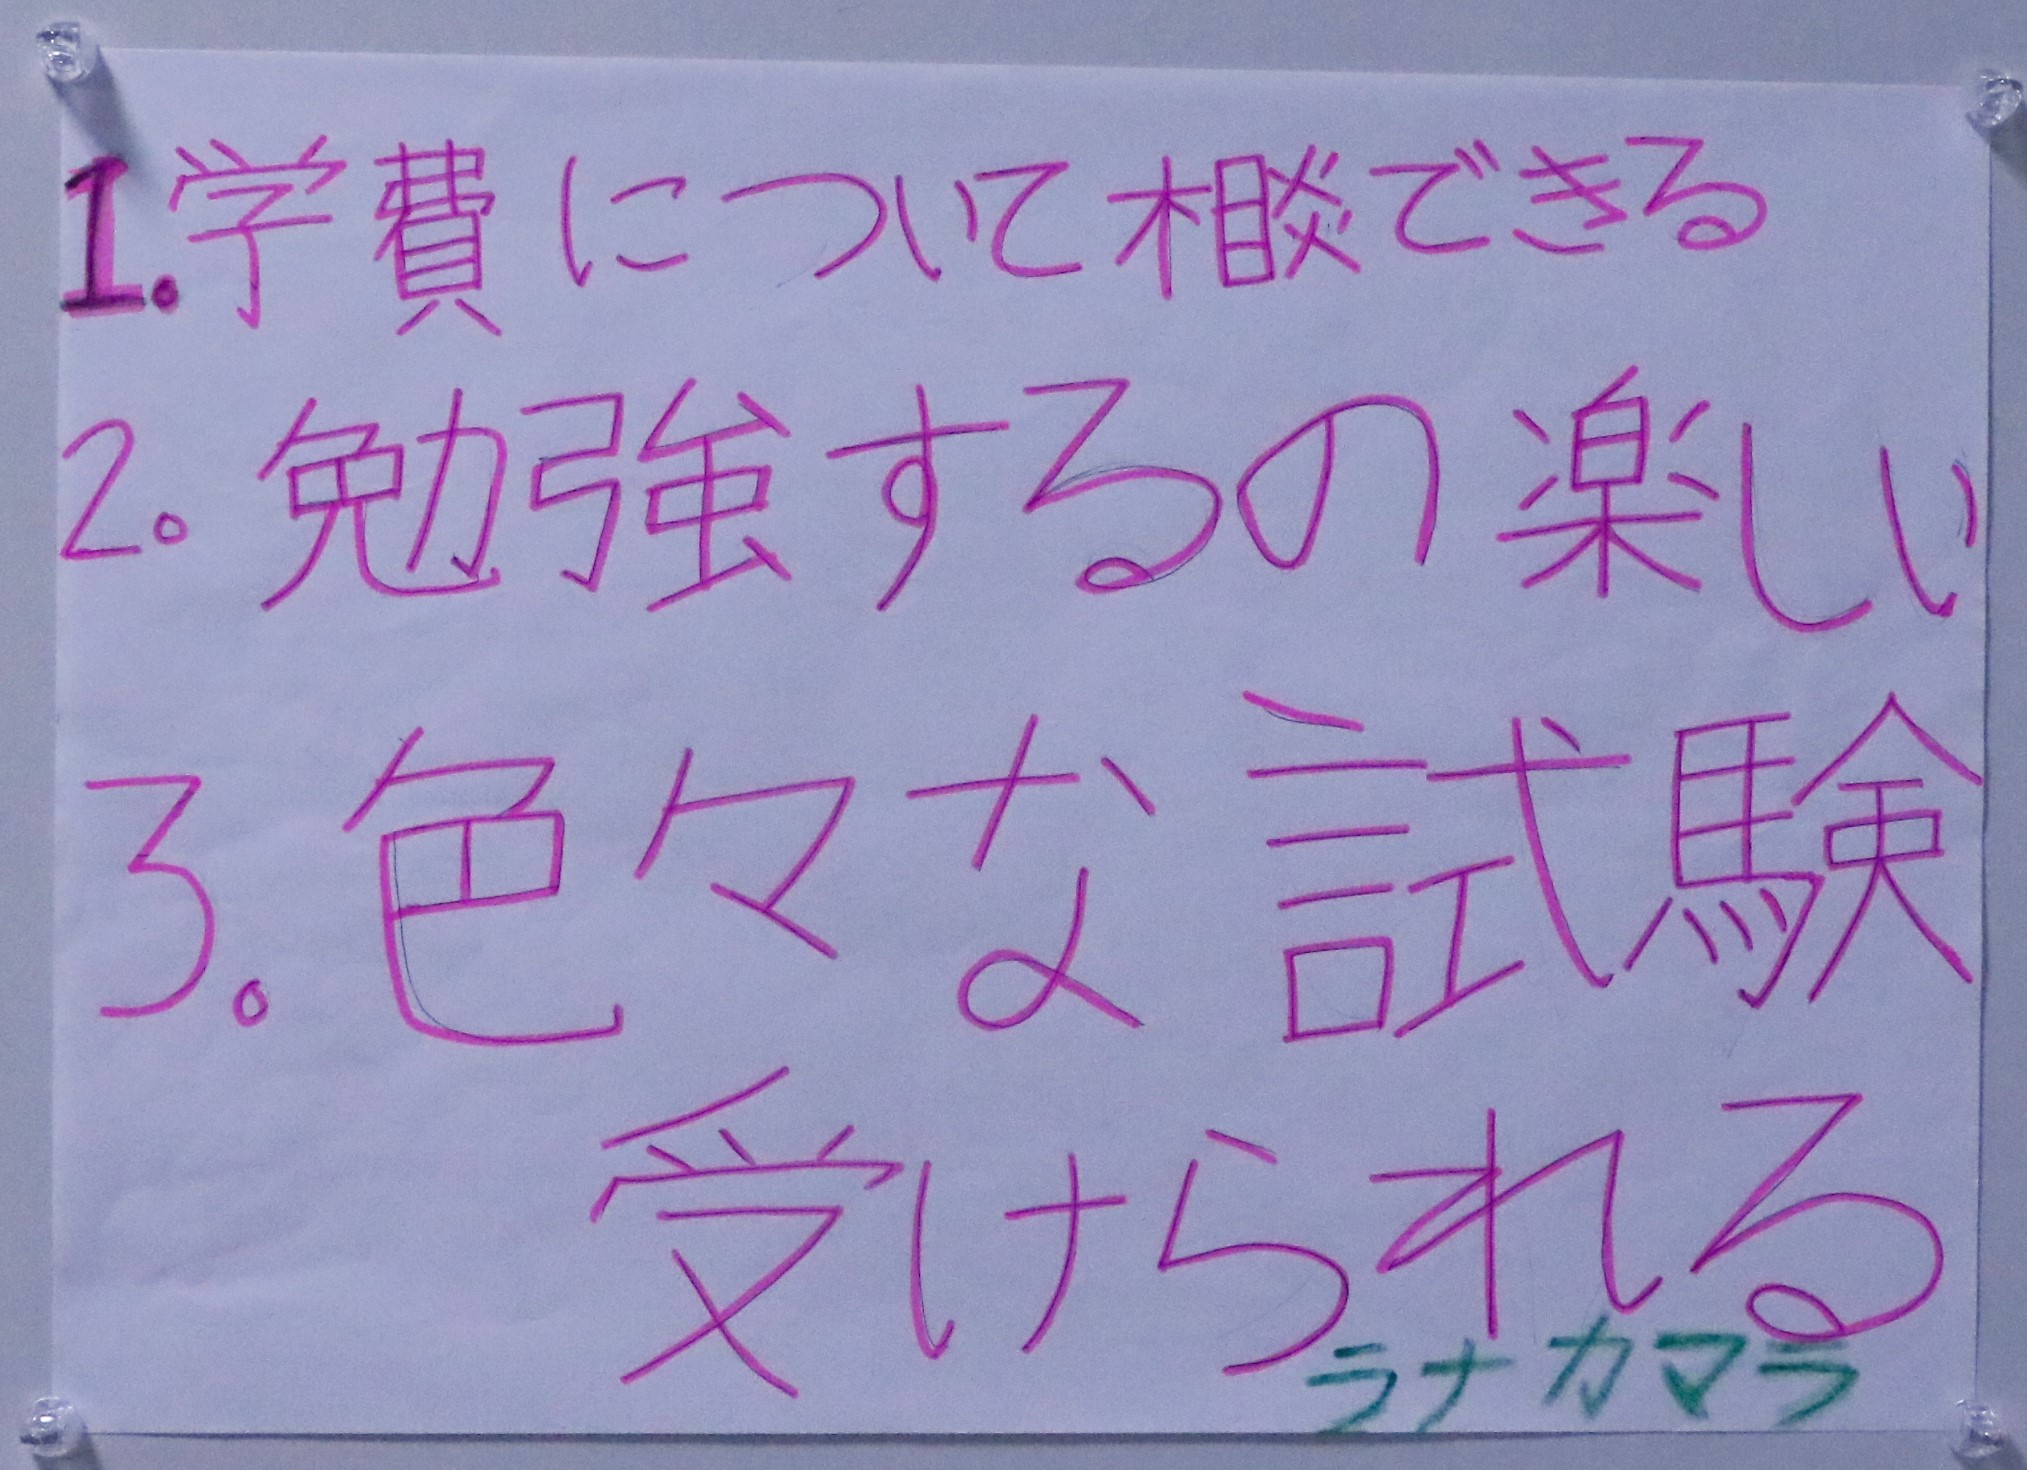 1.学費について相談できる
2.勉強するの楽しい
3.色々な試験
受けられる
ラナカマラ